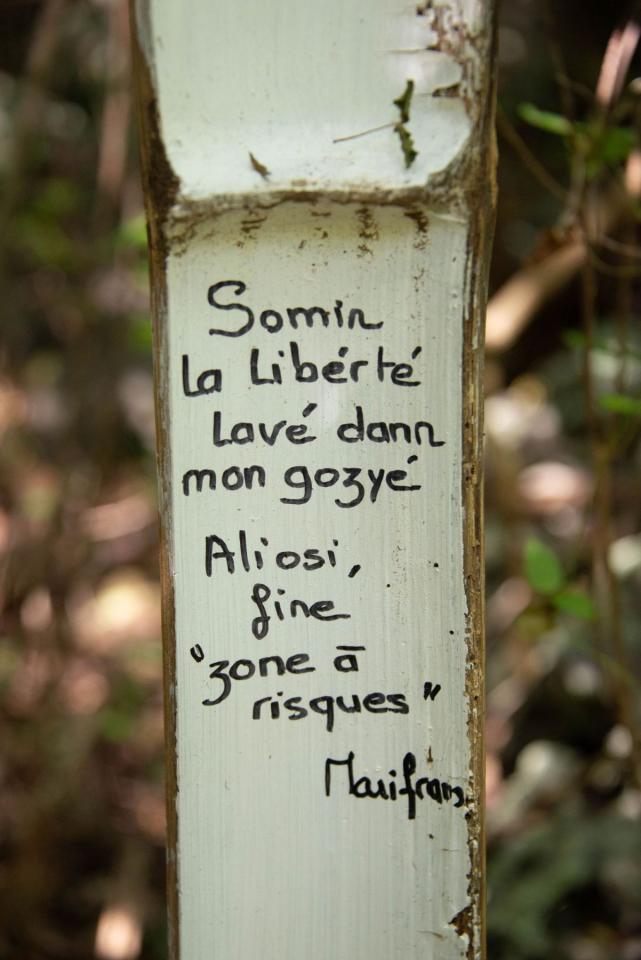 Somin
la Libérté
Lavé dann
mon gozyé
Aliosi,
fine
"zone à
risques"
Marifrans